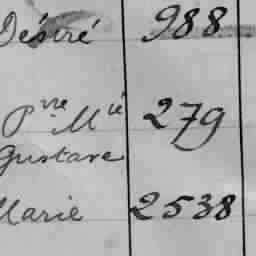 Désiré 988
Pre Mie 279
Gustave
Marie 2538